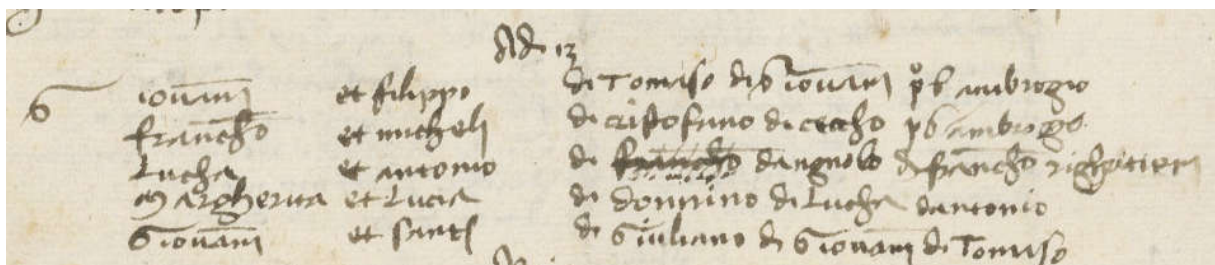 Adi 13
6 iouanni et filippo di Tomaso di Giouanni p̊b ambrogio
franchō et micheli di cristofano di ceccho pb ambrogo
Lucha et antonio di franchō dangnolo di franchō righatieri
Margherita et Lucia di donnino di Lucha dantonio
Giouanni et santi di Giuliano di Giouanni di Tomaso